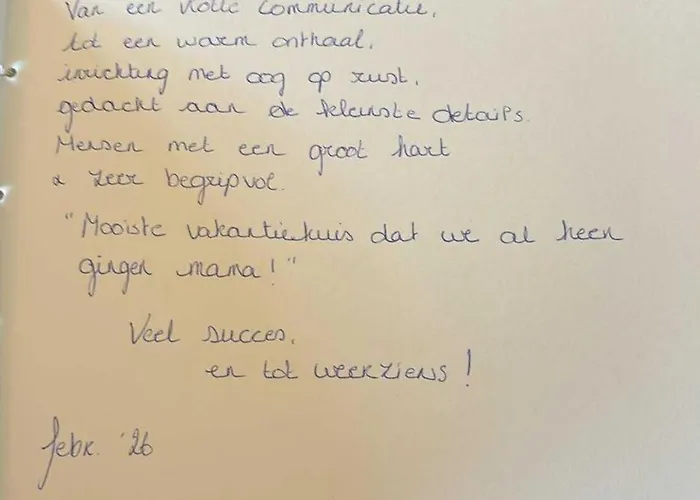 Van een vlotte communicatie,
tot een warm onthaal,
inrichting met oog op rust,
gedacht aan de kleinste details.
Mensen met een groot hart
& zeer begripvol.
"Mooiste vakantiehuis dat we al heen
gingen mama!"
Veel succes,
en tot weerziens!
febr. '26